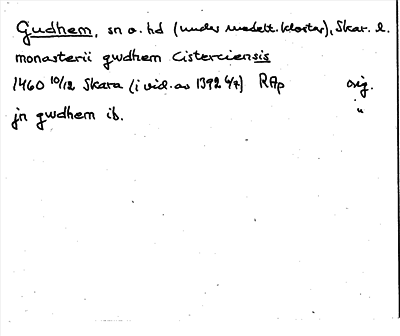 Gudhem, sn o. hd (under medelt. kloster), Skar. l.
monasterii gwdhem Cisterciensis
1460 10/12 Skara (i vid. av 1392 4/7) RAp orig.
jn gwdhem ib. "